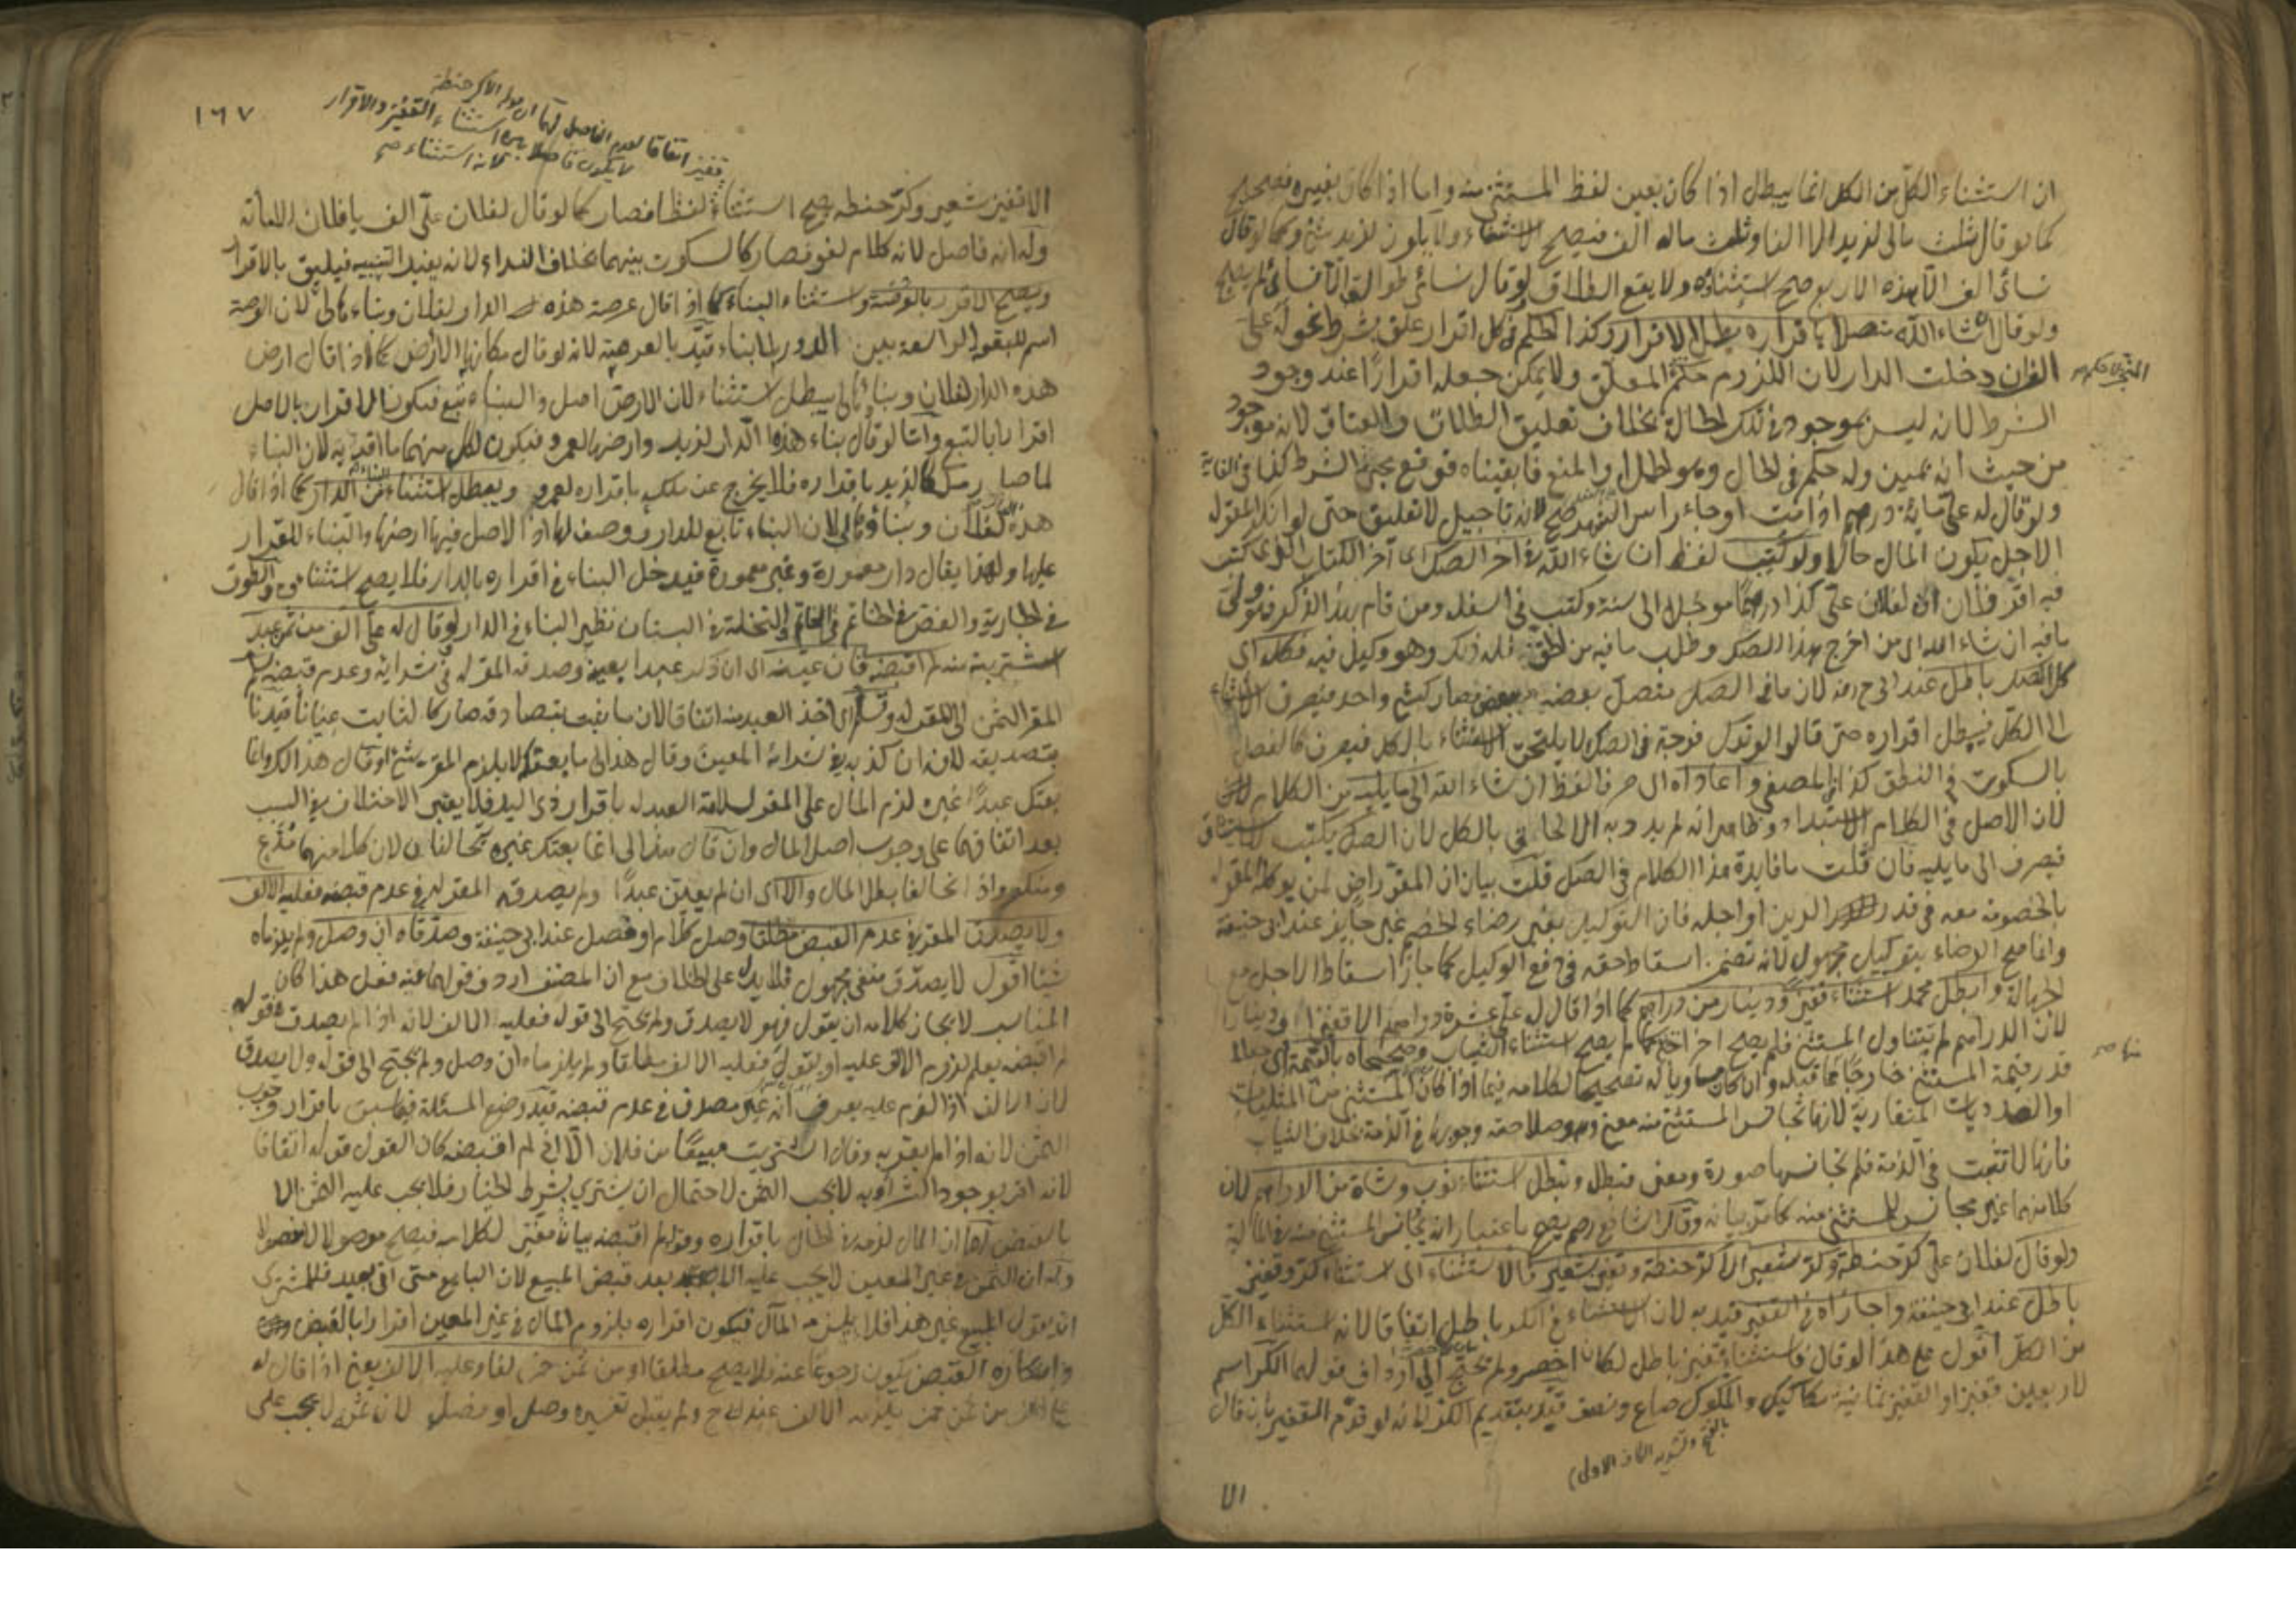 ان استثناء الكل من الكل انما يبطل اذا كان بعين لفظ المستثنى منه واما اذا كان بغيره فصحيح
كما لو قال ثلث مالى لزيد الا الفا وثلث ماله الف فيصح الاستثناء ولا يكون لزيد شئ وكما لو قال
نسائى الف الا هذه الاربع صح استثناؤه ولا يقع الطلاق ولو قال نسائى طوالق الا نسائى لم يصح
ولو قال ان شاء الله متصلا باقراره بطل الاقرار وكذا الحكم فى كل اقرار علق بشرط نحو له على
الف ان دخلت الدار لان اللزوم حكم المعلق ولا يمكن جعله اقرارا عند وجود
الشرط لانه ليس بموجود فى تلك الحالة بخلاف تعليق الطلاق والعتاق لانه موجود
من حيث انه يمين وله حكم فى الحال وهو الحمل او المنع فابقيناه فوقع بمجئ الشرط كذا فى الغاية
ولو قال له على مائة درهم اذا مت او جاء راس الشهر صح لانه تاجيل لا تعليق حتى لو انكر المقر له
الاجل يكون المال حالا ولو كتب لفظ ان شاء الله فى اخر الصك اى آخر الكتاب الذى كتب
فيه اقر فلان ان لفلان على كذا درهما مؤجلا الى سنة وكتب فى اسفله ومن قام بهذا الذكر فهو ولى
ما فيه ان شاء الله اى من اخرج هذا الصك وطلب ما فيه من الحق فله ذلك وهو وكيل فيه فكله اى
كل الصك باطل عند ابى ح رحمه لان ما فى الصك متصل بعضه ببعض فصار كشئ واحد فيصرف الاستثناء
الى الكل فيبطل اقراره حتى قالوا لو ترك فرجة فى الصك لا يلتحق الاستثناء بالكل فيصرف كالفصل
بالسكوت فى النطق كذا فى المصفى واعاداه الى صرفا لفظ ان شاء الله الى ما يليه من الكلام
لان الاصل فى الكلام الاستبداد وظاهر انه لم يرد به الالحاق بالكل لان الصك يكتب للاستيثاق
فيصرف الى ما يليه فان قلت ما فايدة هذا الكلام فى الصك قلت بيان ان المقر راض لمن يوكله المقر له
بالخصومة معه فى قدر الدين او اجله فان التوكيل بغير رضاء الخصم غير جايز عند ابى حنيفة
وانما صح الرضاء بتوكيل مجهول لانه تضمن اسقاط حقه فى دفع الوكيل كما جاز اسقاط الاجل مع
الجهالة وابطل محمد استثناء قفيز ودينار من دراهم كما اذا قال له على عشرة دراهم الا قفيزا او دينارا
لان الدراهم لم يتناول المستثنى فلم يصح اخراجه كما لم يصح استثناء الثياب وصححاه بالقيمة اى جعلا
قدر قيمة المستثنى خارجا عما قبله وان كان مساويا له تصحيحا لكلامه فيما اذا كان المستثنى من المثليات
او العدديات المتقاربة لانها تجانس المستثنى منه معنى وهو صلاحية وجوبها فى الذمة بخلاف الثياب
فانها لا تثبت فى الذمة فلم تجانسها صورة ومعنى فتبطل ونبطل استثناء ثوب وشاة من الدراهم لان
كلا منهما غير مجانس للمستثنى منه كما مر بيانه وقال الشافعى رحمه يصح باعتبار انه يجانس المستثنى منه فى المالية
ولو قال لفلان على كر حنطة وكر شعير الا كر حنطة وقفيز شعير فالاستثناء الى استثناء كر وقفيز
باطل عند ابى حنيفة واجازاه فى القفيز قيد به لان الاستثناء فى الكر باطل اتفاقا لانه استثناء الكل
من الكل اقول على هذا لو قال فاستثناء قفيز باطل لكان اخصر ولم يحتج الى ارداف قولهما الكر اسم
لاربعين قفيزا والقفيز ثمانية مكاكيك والمكوك صاع ونصف قيد بتقديم الكر لانه لو قدم القفيز بان قال
بالفتح وتشديد الكاف الاولى
الا
١٦٧
قفيز اتفاقا لعدم الفاصل لهما ان قوله الا كر حنطة
لا يكون فاصلا بين استثناء القفيز والاقرار
لانه استثناء صح
الا قفيز شعير وكر حنطة يصح استثناؤه لفظا فصار كما لو قال لفلان على الف يا فلان الا مائة
وله انه فاصل لانه كلام لغو فصار كالسكوت بينهما بخلاف النداء لانه يفيد التنبيه فيليق بالاقرار
ويصح الاقرار بالعرصة واستثناء البناء كما اذا قال عرصة هذه الدار لفلان وبناءها لى لان العرصة
اسم للبقعة الواسعة بين الدور بلا بناء قيد بالعرصة لانه لو قال مكانها الارض كما اذا قال ارض
هذه الدار لفلان وبناؤها لى يبطل استثناء لان الارض اصل والبناء تبع فيكون الاقرار بالاصل
اقرارا بالتبع واما لو قال بناء هذه الدار لزيد وارضها لعمرو فيكون لكل منهما ما اقر به لان البناء
لما صار ملكا لزيد باقراره فلا يخرج عن ملكه باقراره لعمرو ويبطل استثناء البناء من الدار كما اذا قال
هذه لفلان وبناؤها لى لان البناء تابع للدار ووصف لها اذ الاصل فيها ارضها والبناء للقرار
عليها ولهذا يقال دار معمورة وغير معمورة فيدخل البناء فى اقراره بالدار فلا يصح استثناؤه والطوق
فى الجارية والفص فى الخاتم والنخلة فى البستان نظير البناء فى الدار ولو قال له على الف من ثمن عبد
اشتريته منه لم اقبضه فان عينه اى ان ذكر عبدا بعينه وصدقه المقر له فى شرائه وعدم قبضه سلم
المقر الثمن الى المقر له وتسلم اى اخذ العبد منه اتفاقا لان ما ثبت بتصادقهما صار كالثابت عيانا قيدنا
بتصديقه لانه ان كذبه فى شرائه المعين وقال هذا لى ما بعتكه لا يلزم المقر شئ او قال هذا لك وانما
بعتك عبدا غيره لزم المال على المقر لسلامة العبد له باقرار ذى اليد فلا يعتبر الاختلاف فى السبب
بعد اتفاقهما على وجوب اصل المال وان قال هذا لى انما بعتك غيره تحالفا لان كلا منهما مدع
ومنكر واذا تحالفا بطل المال والا اى ان لم يعين عبدا ولم يصدقه المقر له فى عدم قبضه فعليه الالف
ولا يصدق المقر فى عدم القبض مطلقا وصل كلامه او فصل عند ابى حنيفة وصدقاه ان وصل ولم يلزماه
شيئا اقول لا يصدق منفى مجهول فلا يدل على الخلاف مع ان المصنف اردف قولهما عنه فعلى هذا كان
المناسب لايجاز كلامه ان يقول فهو لا يصدق ولم يحتج الى قوله فعليه الالف لانه اذا لم يصدق فى قوله
لم اقبضه يعلم لزوم الالف عليه او يقول فعليه الالف مطلقا ولم يلزماه ان وصل ولم يحتج الى قوله ولا يصدق
لان الالف اذا لزم عليه يعرف انه غير مصدق فى عدم قبضه قيد وضع المسئلة فيما سبق باقرار وجوب
الثمن لانه اذا لم يقر به وقال اشتريت مبيعا من فلان الا انى لم اقبضه كان القول قوله اتفاقا
لانه اقر بوجود الشراء وبه لا يجب الثمن لاحتمال ان يشترى بشرط الخيار فلا يجب عليه الثمن الا
بالقبض لهما ان المال لزمه فى الحال باقراره وقوله لم اقبضه بيان مغير لكلامه فيصح موصولا لا مفصولا
وله ان الثمن فى غير المعين لا يجب عليه الا بعد قبض المبيع لان البايع متى اتى بعبد فللمشترى
ان يقول المبيع غير هذا فلا يلزمه المال فيكون اقراره بلزوم المال فى غير المعين اقرارا بالقبض
وانكاره القبض يكون رجوعا عنه فلا يصح مطلقا او من ثمن خمر لغا وعليه الالف يعنى اذا قال له
على الف من ثمن خمر يلزمه الالف عند ابى ح ولم يقبل تفسيره وصل او فصل لان ثمنه لا يجب على